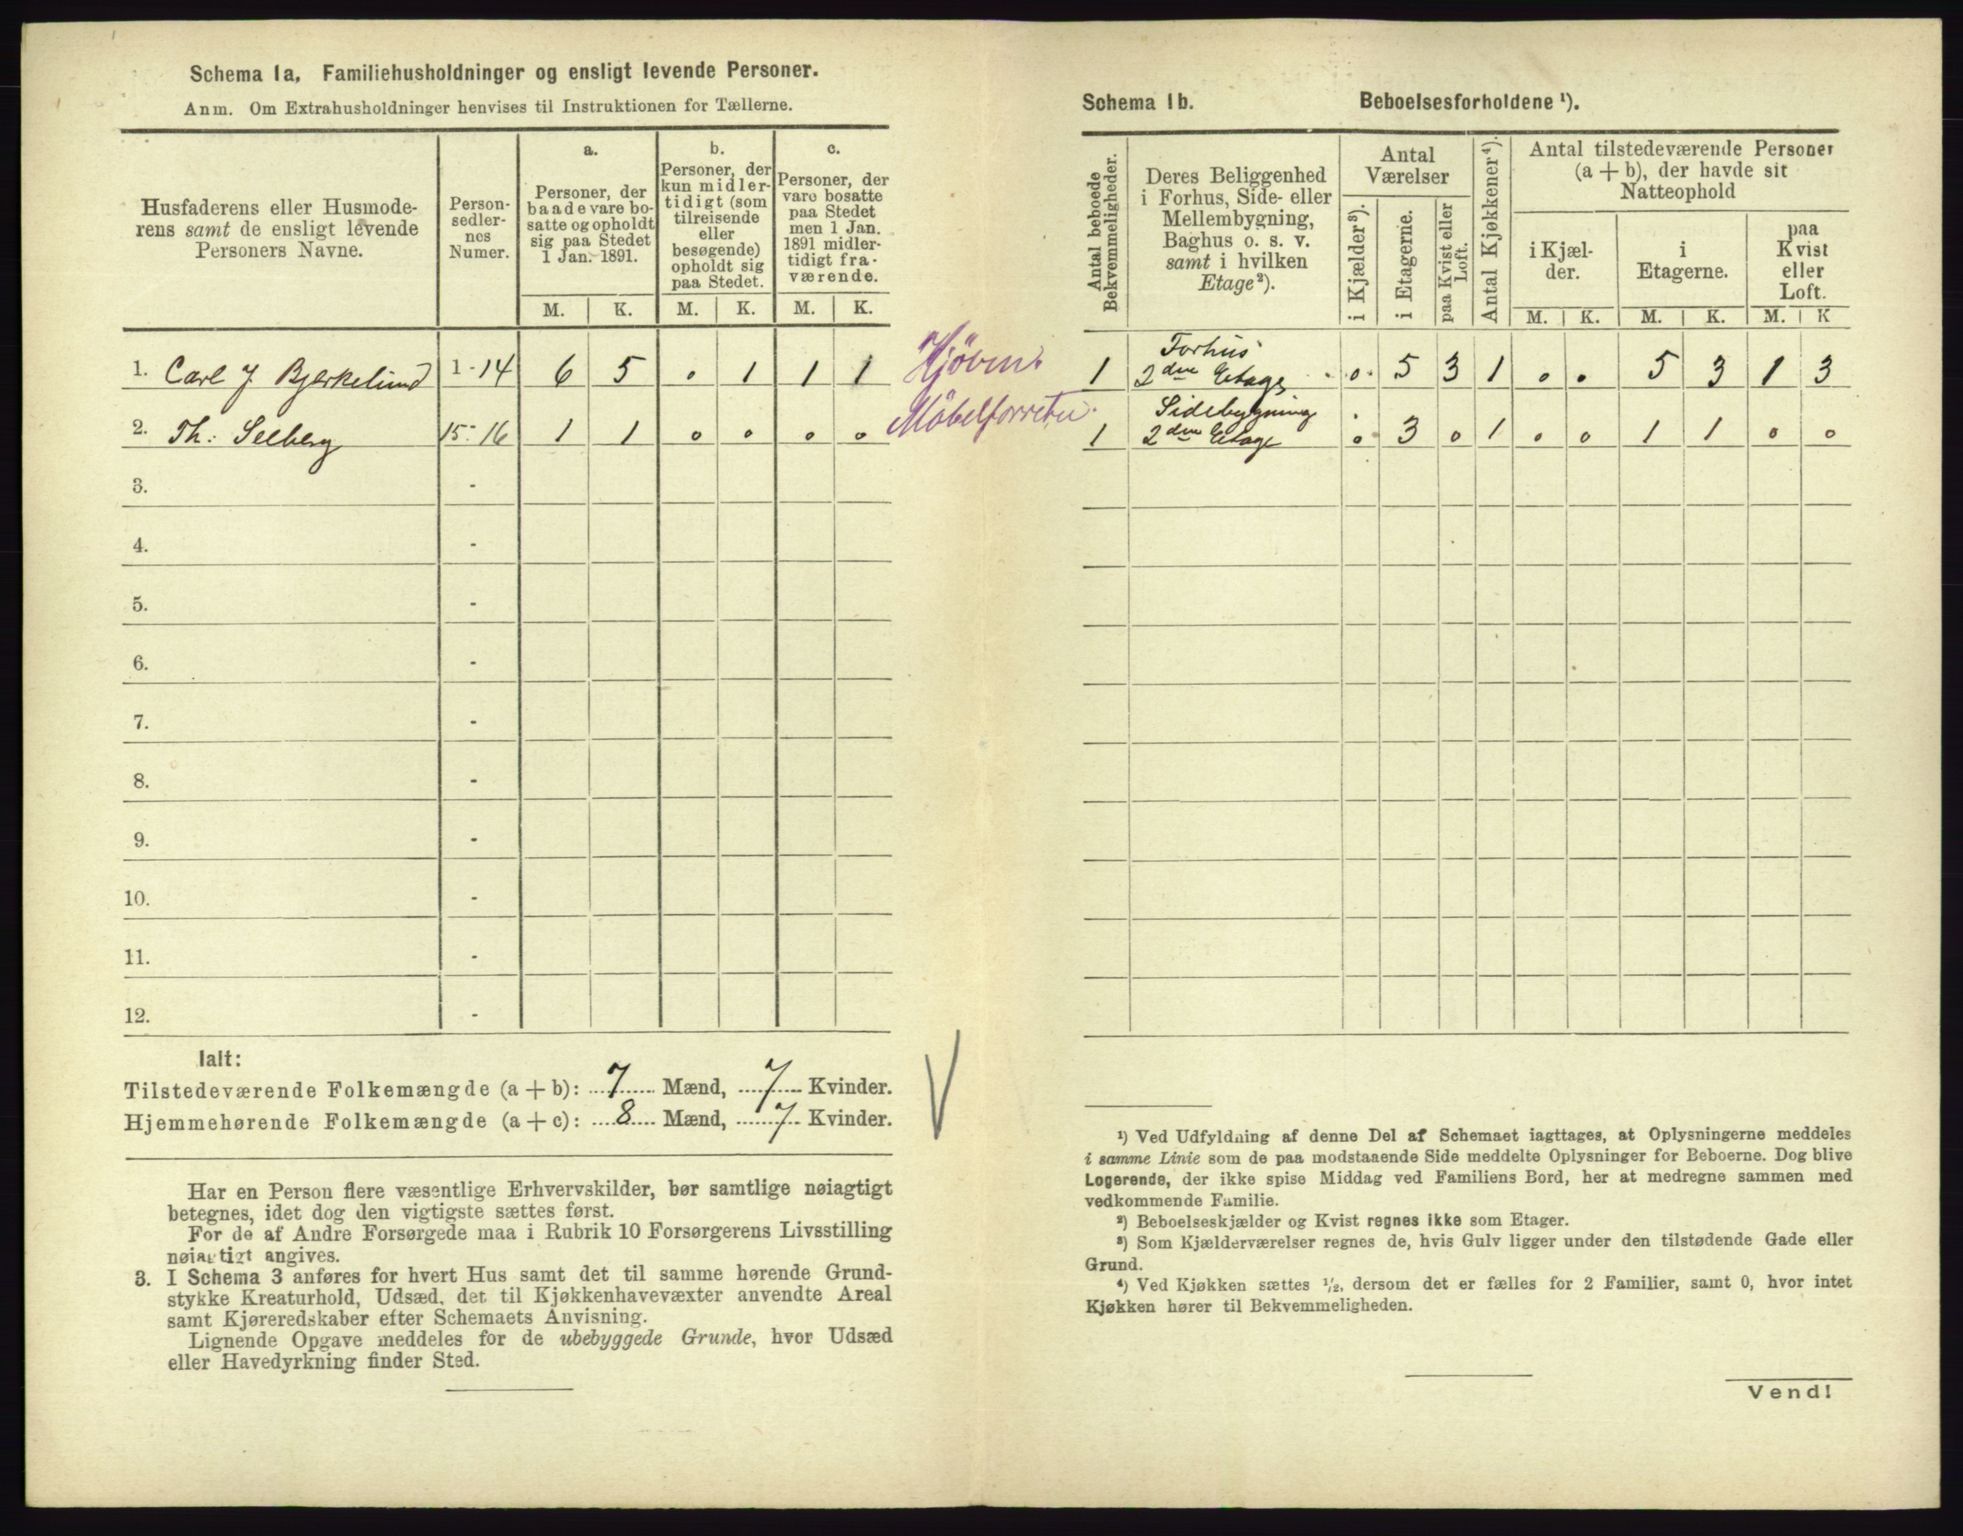 Schema 1a, Familiehusholdninger og ensligt levende Personer.
Anm. Om Extrahusholdninger henvises til Instruktionen for Tællerne.
Husfaderens eller Husmode-
rens samt de ensligt levende
Personers Navne.
Person-
sedler-
nes
Numer.
a.
Personer, der
baade vare bo-
satte og opholdt
sig paa Stedet
1 Jan. 1891.
b.
Personer, der
kun midler-
tidigt (som
tilreisende
eller
besøgende)
opholdt sig
paa Stedet.
c.
Personer, der
vare bosatte
paa Stedet
men 1 Jan.
1891 midler-
tidigt fra-
værende.
M. K. M. K. M. K.
1. Carl J. Bjerkelund 1-14 6 5 . 1 1 1
2. Th: Seeberg 15-16 1 1 0 0 0 0
3. -
4. -
5. -
6. -
7. -
8. -
9. -
10. -
11. -
12. -
Ialt:
Tilstedeværende Folkemængde (a + b): 7 Mænd, 7 Kvinder.
Hjemmehørende Folkemængde (a + c): 8 Mænd, 7 Kvinder.
Har en Person flere væsentlige Erhvervskilder, bør samtlige nøiagtigt
betegnes, idet dog den vigtigste sættes først.
For de af Andre Forsørgede maa i Rubrik 10 Forsørgerens Livsstilling
nøiagtigt angives.
3. I Schema 3 anføres for hvert Hus samt det til samme hørende Grund-
stykke Kreaturhold, Udsæd, det til Kjøkkenhavevæxter anvendte Areal
samt Kjøreredskaber efter Schemaets Anvisning.
Lignende Opgave meddeles for de ubebyggede Grunde, hvor Udsæd
eller Havedyrkning finder Sted.
Schema 1b. Beboelsesforholdene ¹).
Antal beboede
Bekvemmeligheder.
Deres Beliggenhed
i Forhus, Side- eller
Mellembygning,
Baghus o. s. v.
samt i hvilken
Etage²).
Antal
Værelser
i Kjælder³).
i Etagerne.
paa Kvist eller
Loft.
Antal Kjøkkener⁴).
Antal tilstedeværende Personer
(a + b), der havde sit
Natteophold
i Kjæl-
der.
i
Etagerne.
paa
Kvist
eller
Loft.
M. K. M. K. M. K
Møbelforretn.
Forhus
1 2den Etage 0 5 3 1 . . 5 3 1 3
Sidebygning
1 2den Etage 0 3 0 1 0 0 1 1 0 0
¹) Ved Udfyldning af denne Del af Schemaet iagttages, at Oplysningerne meddeles
i samme Linie som de paa modstaaende Side meddelte Oplysninger for Beboerne. Dog blive
Logerende, der ikke spise Middag ved Familiens Bord, her at medregne sammen med
vedkommende Familie.
²) Beboelseskjælder og Kvist regnes ikke som Etager.
³) Som Kjælderværelser regnes de, hvis Gulv ligger under den tilstødende Gade eller
Grund.
⁴) Ved Kjøkken sættes ½, dersom det er fælles for 2 Familier, samt 0, hvor intet
Kjøkken hører til Bekvemmeligheden.
Vend!